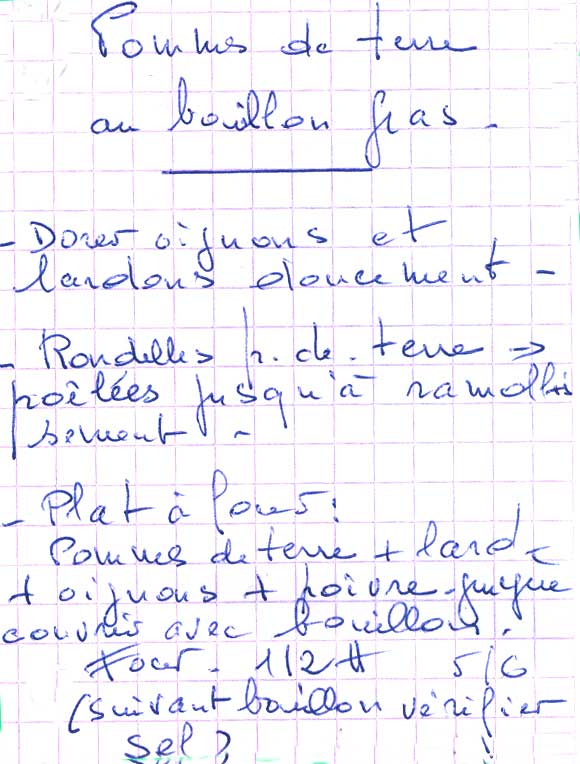 Pommes de terre
au bouillon gras.
- Dorer oignons et
lardons doucement -
- Rondelles p. de. terre →
poêlées jusqu'à ramollis
sement -
- Plat à four:
Pommes de terre + lard
+ oignons + poivre
couvrir avec bouillon.
Four. 1/2 H 5/6
(suivant bouillon vérifier
sel) !